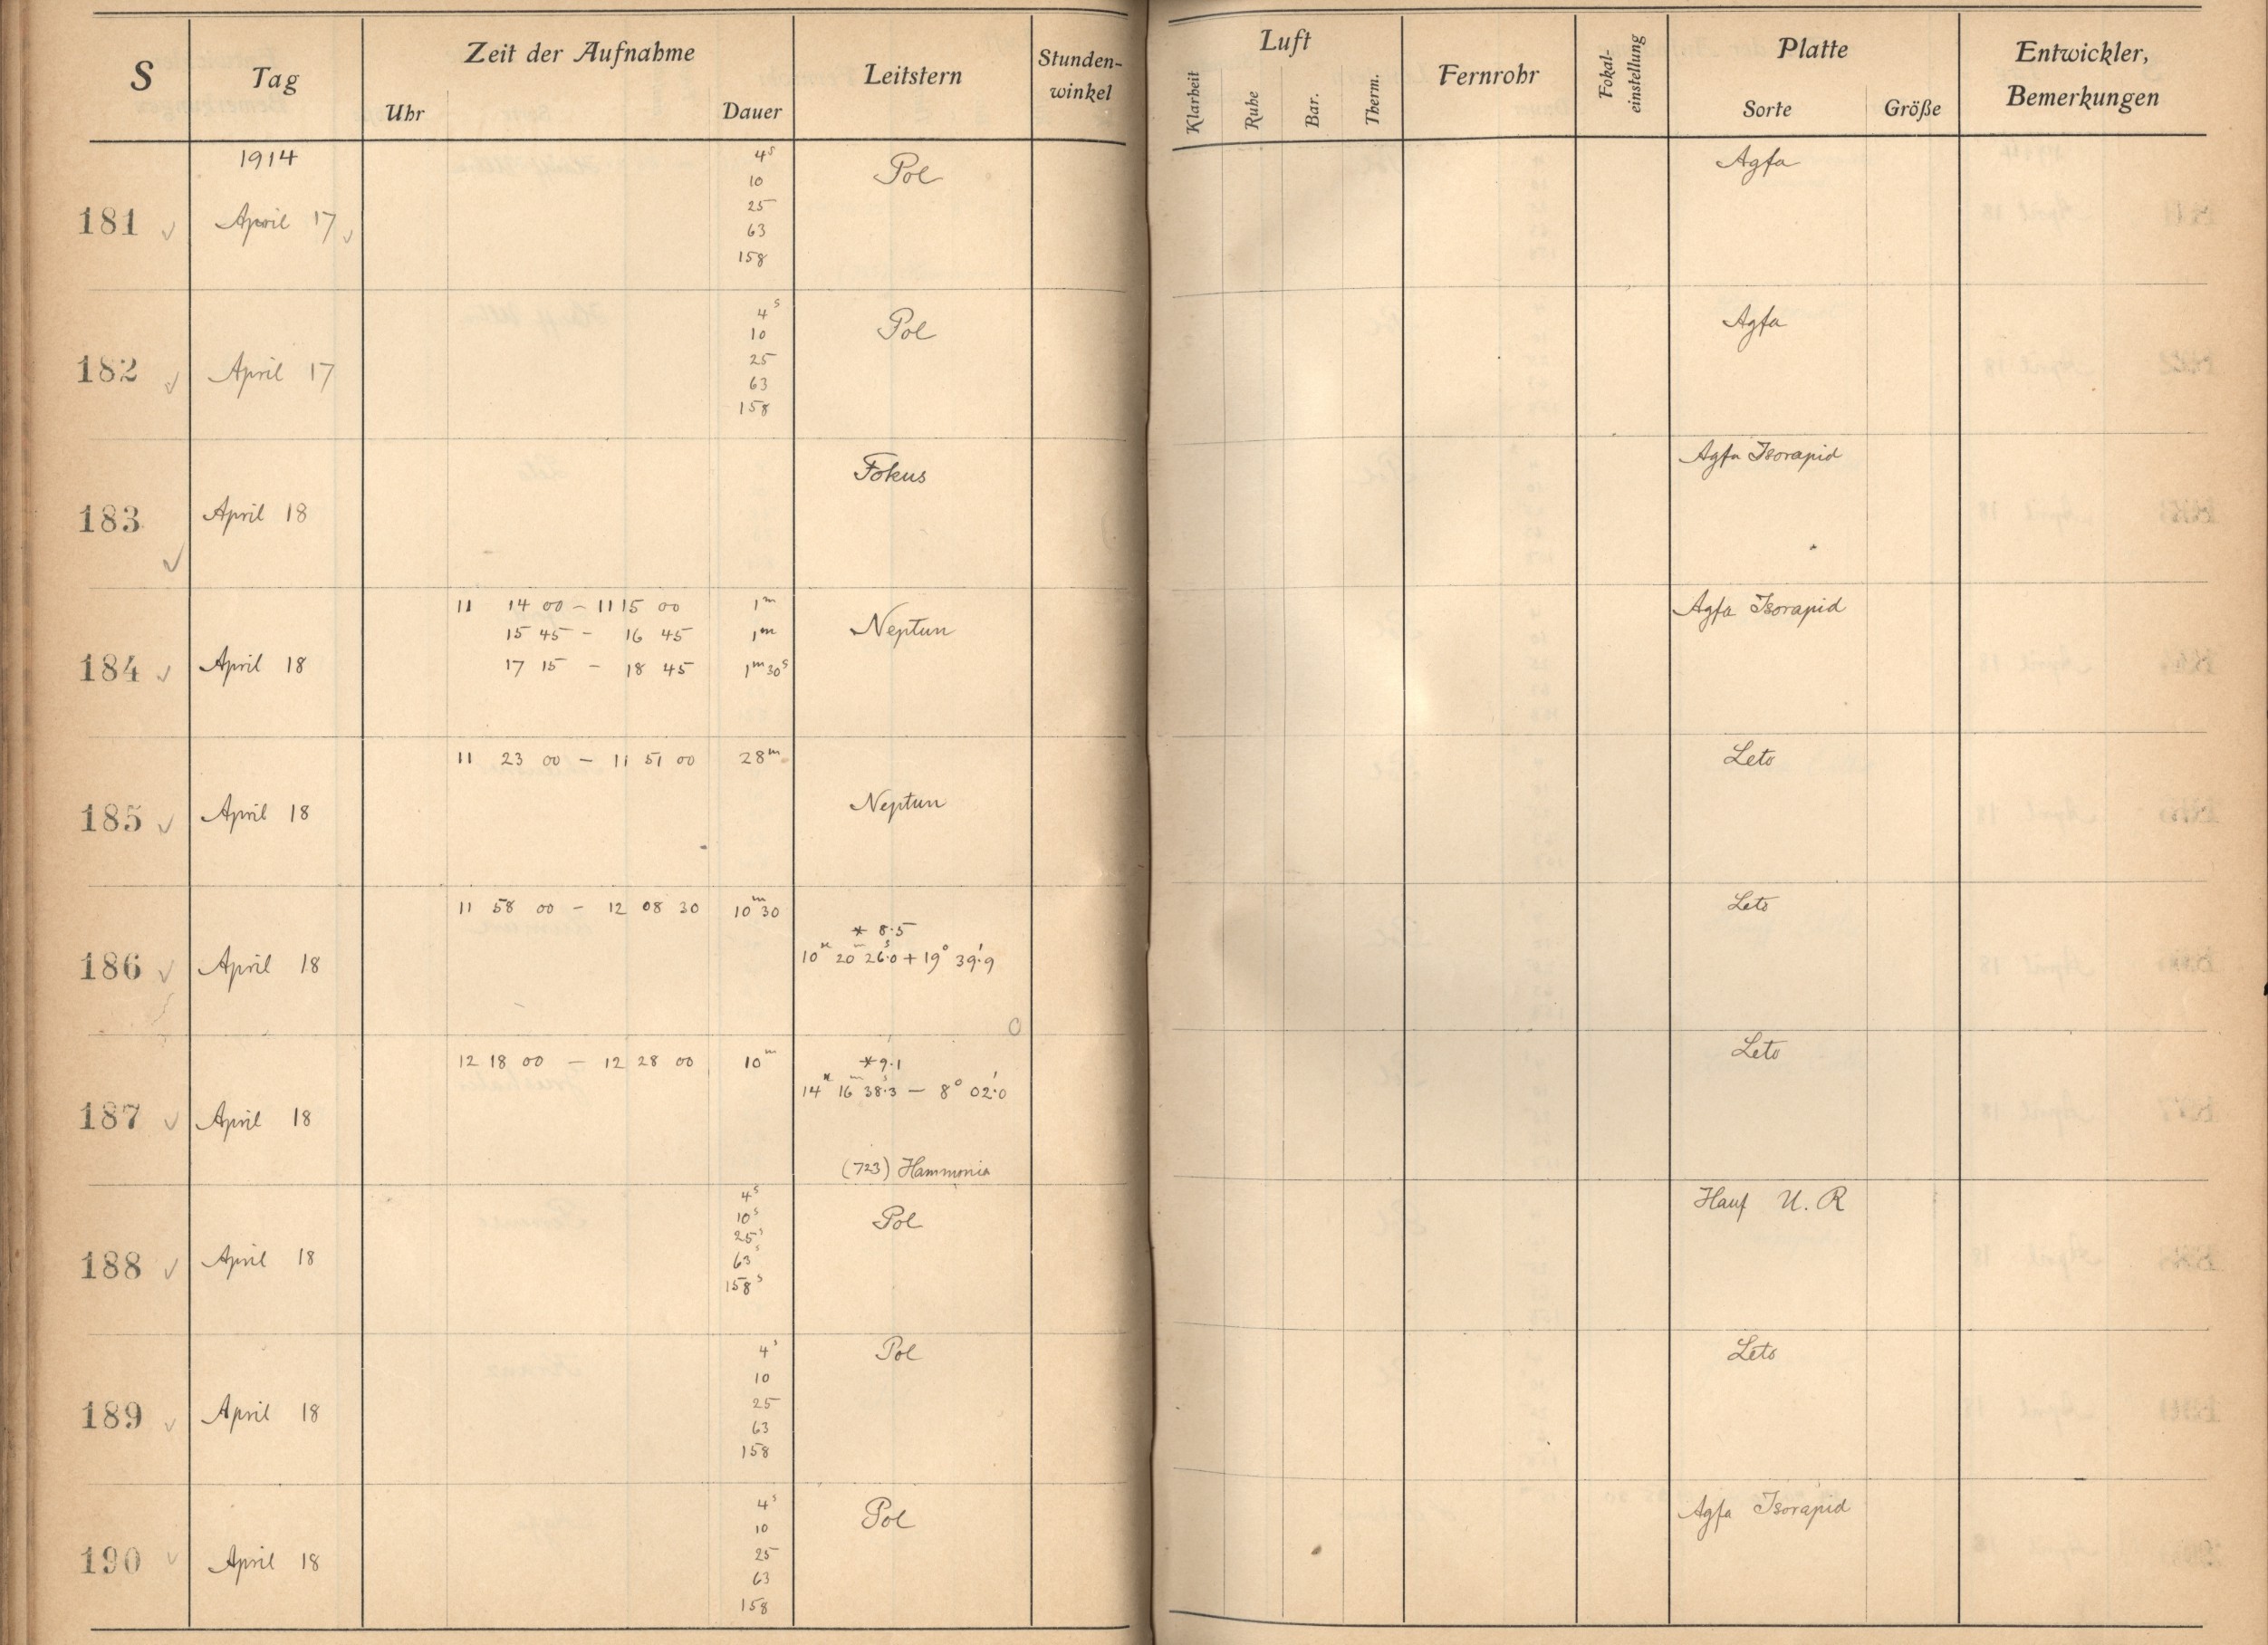 S Tag Zeit der Aufnahme Leitstern Stunden-winkel Luft Fernrohr Fokal-einstellung Platte Entwickler, Bemerkungen
Uhr Dauer Klarheit Ruhe Bar. Therm. Sorte Größe
1914 4s Pol Agfa
10
181 April 17 25
63
158
4s Pol Agfa
10
182 April 17 25
63
158
Fokus Agfa Isorapid
183 April 18
11 14 00 – 11 15 00 1m Neptun Agfa Isorapid
15 45 – 16 45 1m
184 April 18 17 15 – 18 45 1m 30s
11 23 00 – 11 51 00 28m Leto
185 April 18 Neptun
11 58 00 – 12 08 30 10m 30 Leto
* 8.5
186 April 18 10h 20m 26s.0 + 19° 39'.9
12 18 00 – 12 28 00 10m *9.1 Leto
14h 16m 38s.3 – 8° 02'.0
187 April 18
(723) Hammonia
4s Pol Hauf U. R
10s
25s
188 April 18 63s
158s
4s Pol Leto
10
189 April 18 25
63
158
4s Pol Agfa Isorapid
10
190 April 18 25
63
158